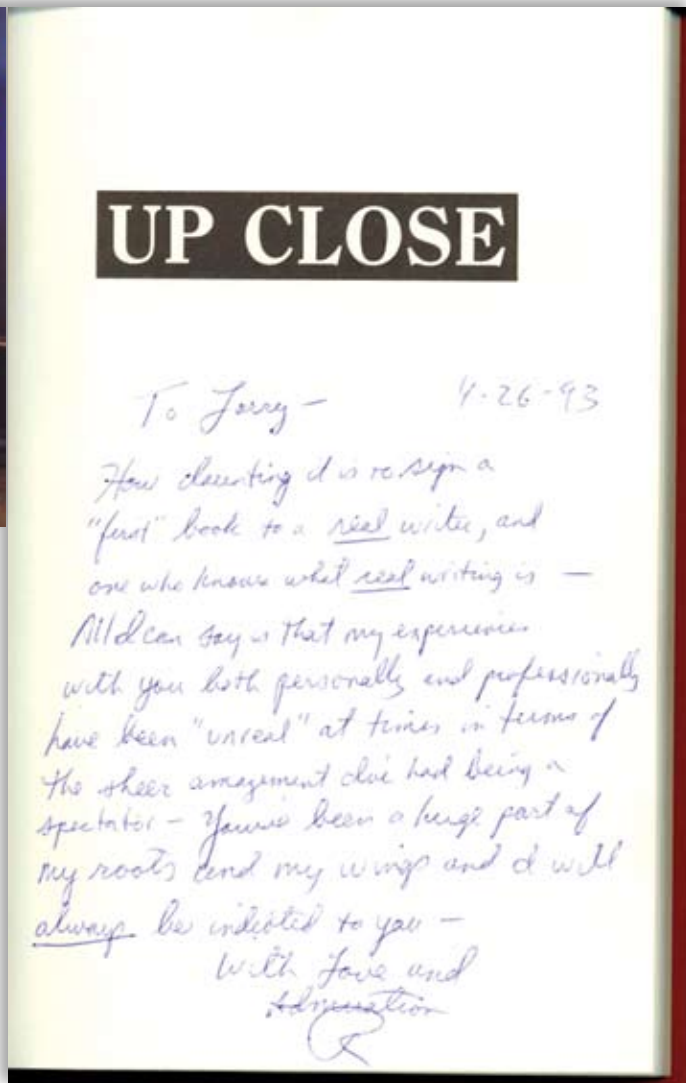 UP CLOSE
To Larry – 4-26-93
How daunting it is to sign a
"first" book to a real writer, and
one who knows what real writing is –
All I can say is that my experiences
with you both personally and professionally
have been "unreal" at times in terms of
the sheer amazement I've had being a
spectator – You've been a huge part of
my roots and my wings and I will
always be indebted to you –
With Love and
Admiration